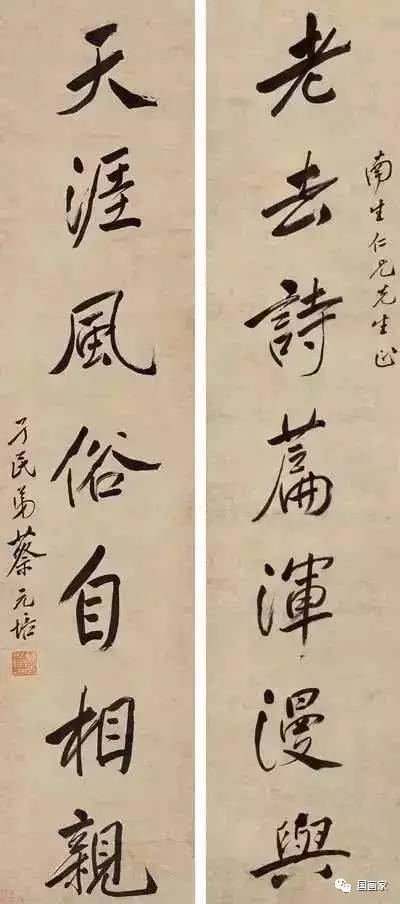 老去詩篇渾漫與
南生仁兄先生正
天涯風俗自相親
孑民弟蔡元培
国画家